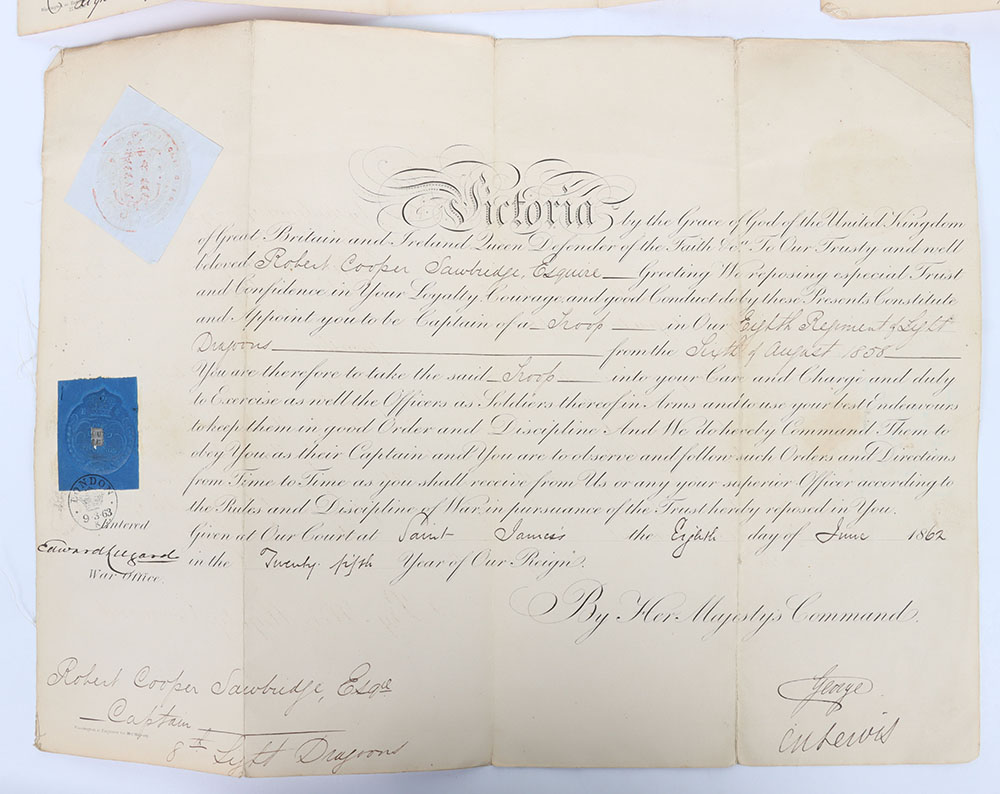 Victoria by the Grace of God of the United Kingdom
of Great Britain and Ireland Queen Defender of the Faith &c.a To Our Trusty and well
beloved Robert Cooper Sawbridge, Esquire Greeting We reposing especial Trust
and Confidence in Your Loyalty Courage and good Conduct do by these Presents Constitute
and Appoint you to be Captain of a Troop in Our Eighth Regiment of Light
Dragoons from the Sixth of August 1858
You are therefore to take the said Troop into your Care and Charge and duly
to Exercise as well the Officers as Soldiers thereof in Arms and to use your best Endeavours
to keep them in good Order and Discipline And We do hereby Command Them to
obey You as their Captain and You are to observe and follow such Orders and Directions
from Time to Time as you shall receive from Us or any your superior Officer according to
the Rules and Discipline of War in pursuance of the Trust hereby reposed in You.
Given at Our Court at Saint James's the Eighth day of June 1862
in the Twenty fifth Year of Our Reign.
By Her Majesty's Command.
George
LONDON
9·3·63
Entered
Edward Lugard
War Office.
Robert Cooper Sawbridge, Esqre
Captain
8th Light Dragoons